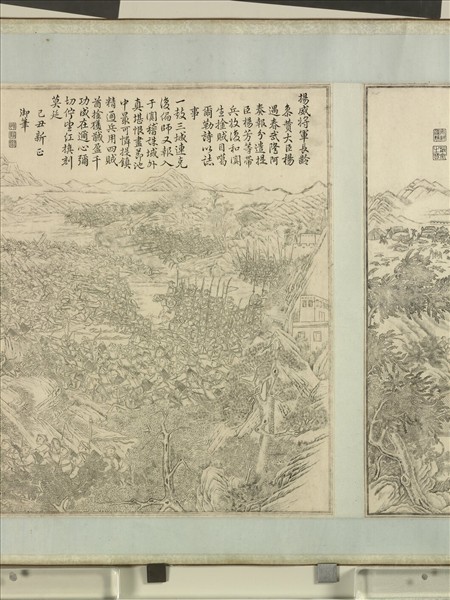 揚威將軍長齡
叅贊大臣楊
遇春武隆阿
奏報分遣提
臣楊芳等帶
兵收復和闐
生擒賊目噶
爾勒詩以誌
事
一鼓三城連克
復偏師又報入
于闐稽誅城外
真堪恨盡池
中最可憐提鎮
精通兵用四賊
酋擒獲馘盈千
功成在邇心彌
切佇望紅旗刻
莫延
己丑新正
御筆